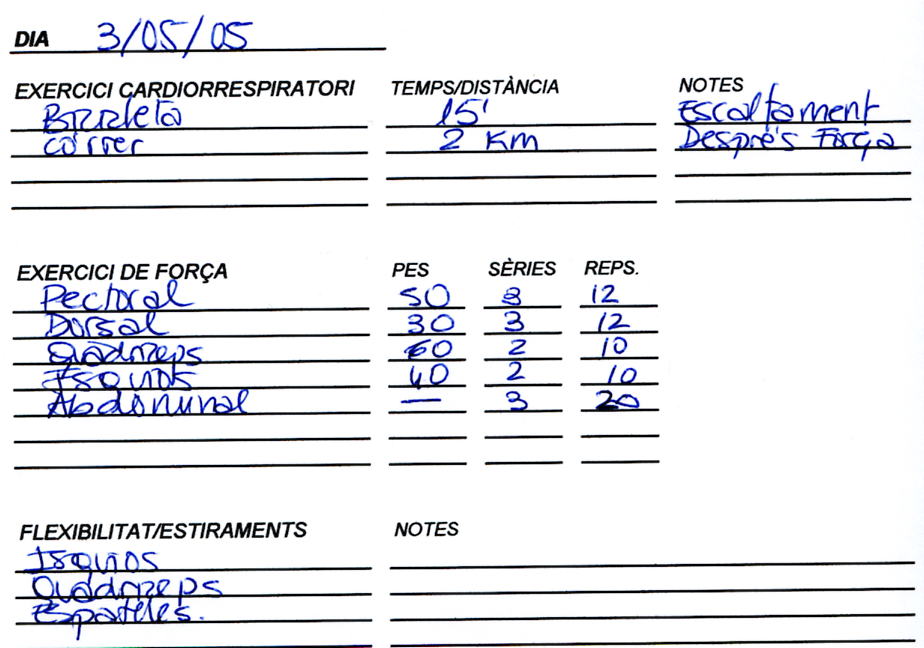 DIA 3/05/05
EXERCICI CARDIORRESPIRATORI TEMPS/DISTÀNCIA NOTES
Bicicleta 15' Escalfament
córrer 2 Km Després Força
EXERCICI DE FORÇA PES SÈRIES REPS.
Pectoral 50 3 12
Dorsal 30 3 12
Quàdriceps 60 2 10
Isquios 40 2 10
Abdominal — 3 20
FLEXIBILITAT/ESTIRAMENTS NOTES
Isquios
Quàdriceps
Espatlles.